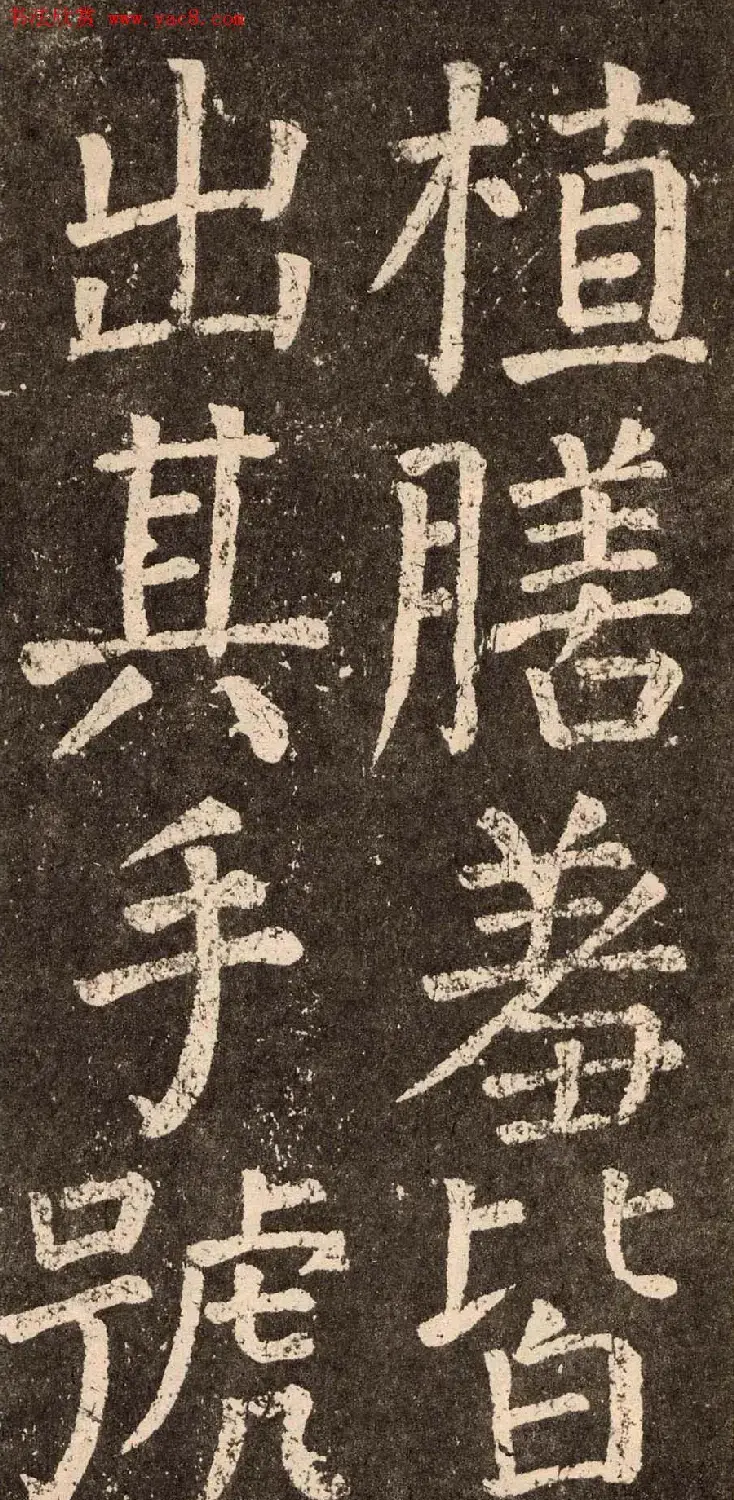 书法欣赏 www.yac8.com
植膳羞皆
出其手號